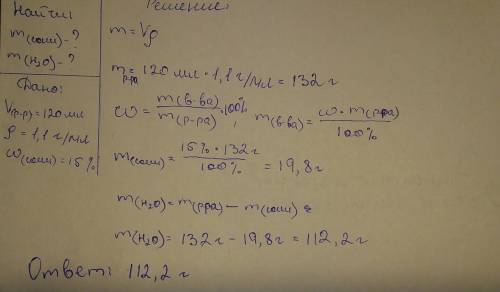 Найти:
m(соли)-?
m(H₂O)-?
Дано:
V(р-р)=120 мл
ρ = 1,1 г/мл
ω(соли)=15%
Решение:
m = Vρ
m р-ра = 120 мл · 1,1 г/мл = 132 г
ω = m(в-ва) / m(р-ра) · 100% ; m(в-ва) = ω · m(р-ра) / 100%
m(соли) = 15% · 132 г / 100% = 19,8 г
m(H₂O) = m(р-ра) - m(соли)
m(H₂O) = 132 г - 19,8 г = 112,2 г
Ответ: 112,2 г